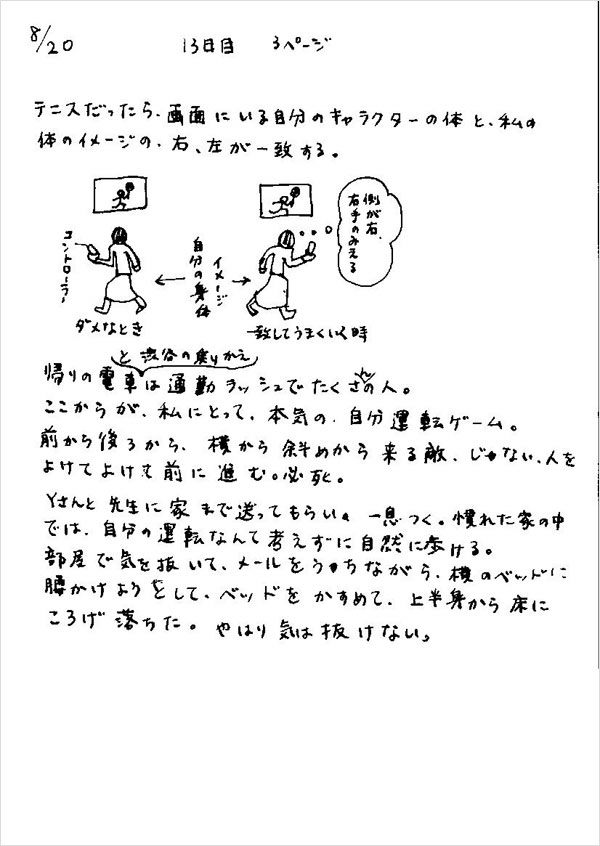 8/20 13日目 3ページ
テニスだったら、画面にいる自分のキャラクターの体と、私の
体のイメージの、右、左が一致する。
側が右、
右手のみえる
コントローラー
自分の身体
イメージ
ダメなとき
一致してうまくいく時
と渋谷の乗りかえ
帰りの電車は通勤ラッシュでたくさんの人。
ここからが、私にとって、本気の、自分運転ゲーム。
前から後ろから、横から斜めから来る敵、じゃない、人を
よけてよけて前に進む。必死。
Yさんと先生に家まで送ってもらい、一息つく。慣れた家の中
では、自分の運転なんて考えずに自然に歩ける。
部屋で気を抜いて、メールをうちながら、横のベッドに
腰かけようとして、ベッドをかすめて、上半身から床に
ころげ落ちた。やはり気は抜けない。